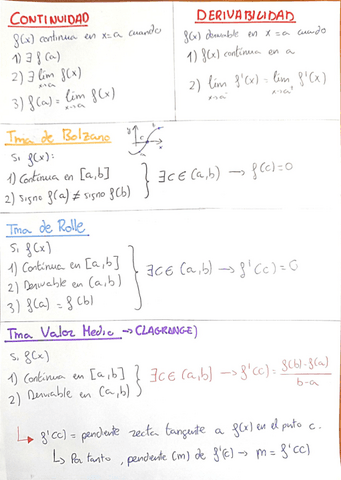 CONTINUIDAD
f(x) continua en x=a cuando
1) ∃ f(a)
2) ∃ lim f(x)
x→a
3) f(a) = lim f(x)
x→a
DERIVABILIDAD
f(x) derivable en x=a cuando
1) f(x) continua en a
2) lim f'(x) = lim f'(x)
x→a⁻ x→a⁺
Tma de Bolzano
Si f(x):
1) Continua en [a,b]
2) Signo f(a) ≠ signo f(b)
∃c∈(a,b) → f(c)=0
Tma de Rolle
Si f(x)
1) Continua en [a,b]
2) Derivable en (a,b)
3) f(a) = f(b)
∃c∈(a,b) → f'(c)=0
Tma Valor Medio → (LAGRANGE)
Si f(x)
1) Continua en [a,b]
2) Derivable en (a,b)
∃c∈(a,b) → f'(c) = f(b)-f(a)
b-a
↳ f'(c) = pendiente recta tangente a f(x) en el punto c.
↳ Por tanto, pendiente (m) de f'(c) → m = f'(c)